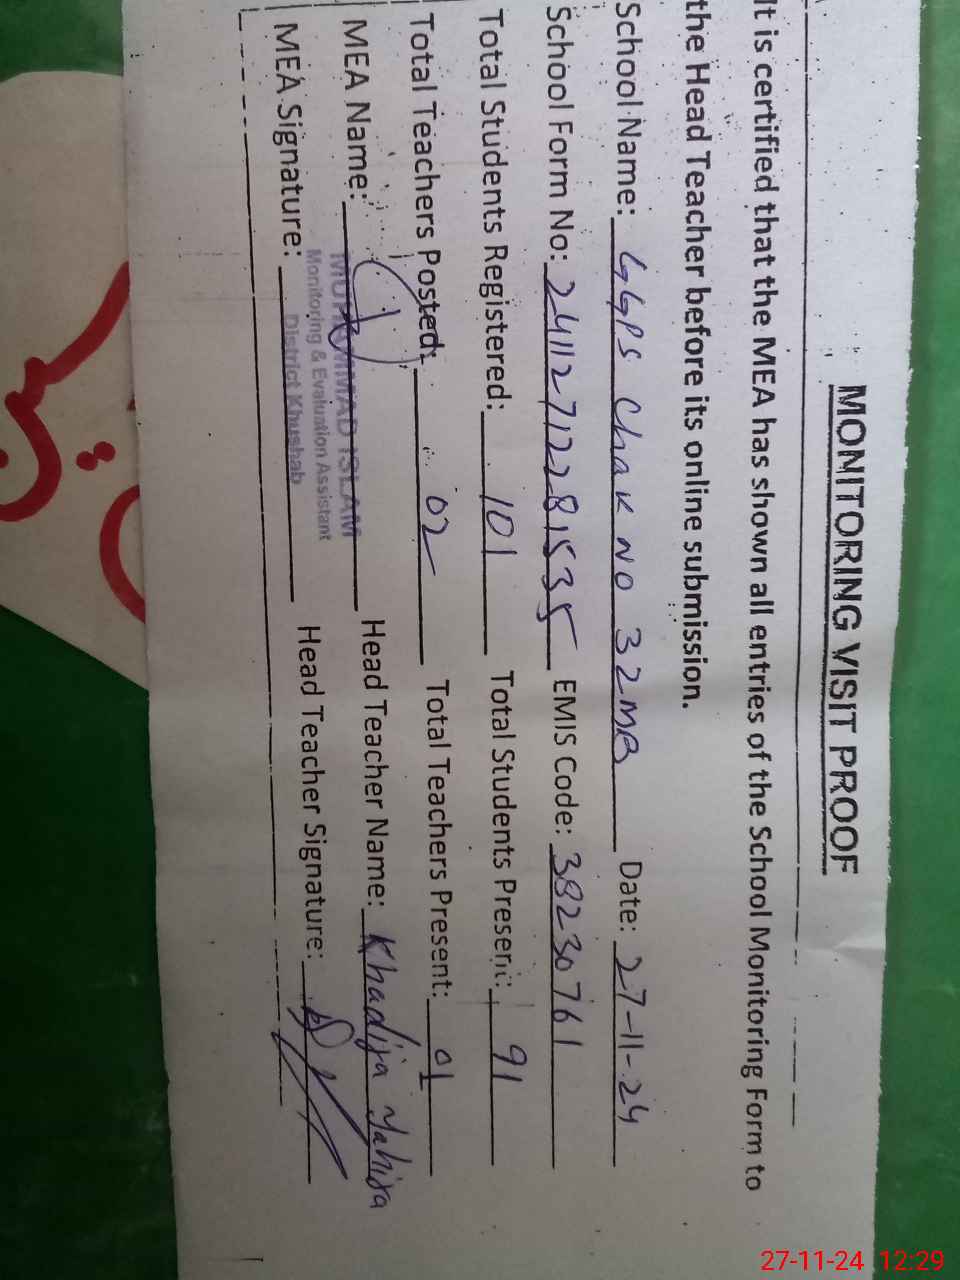 MONITORING VISIT PROOF
It is certified that the MEA has shown all entries of the School Monitoring Form to
the Head Teacher before its online submission.
School Name: GGPS Chak NO 32MB Date: 27-11-24
School Form No: 241127122281535 EMIS Code: 38230761
Total Students Registered: 101 Total Students Present: 91
Total Teachers Posted: 02 Total Teachers Present: 01
MEA Name: MUHAMMAD ISLAM Head Teacher Name: Khadija
Monitoring & Evaluation Assistant
MEA Signature: District Khushab Head Teacher Signature:
27-11-24 12:29